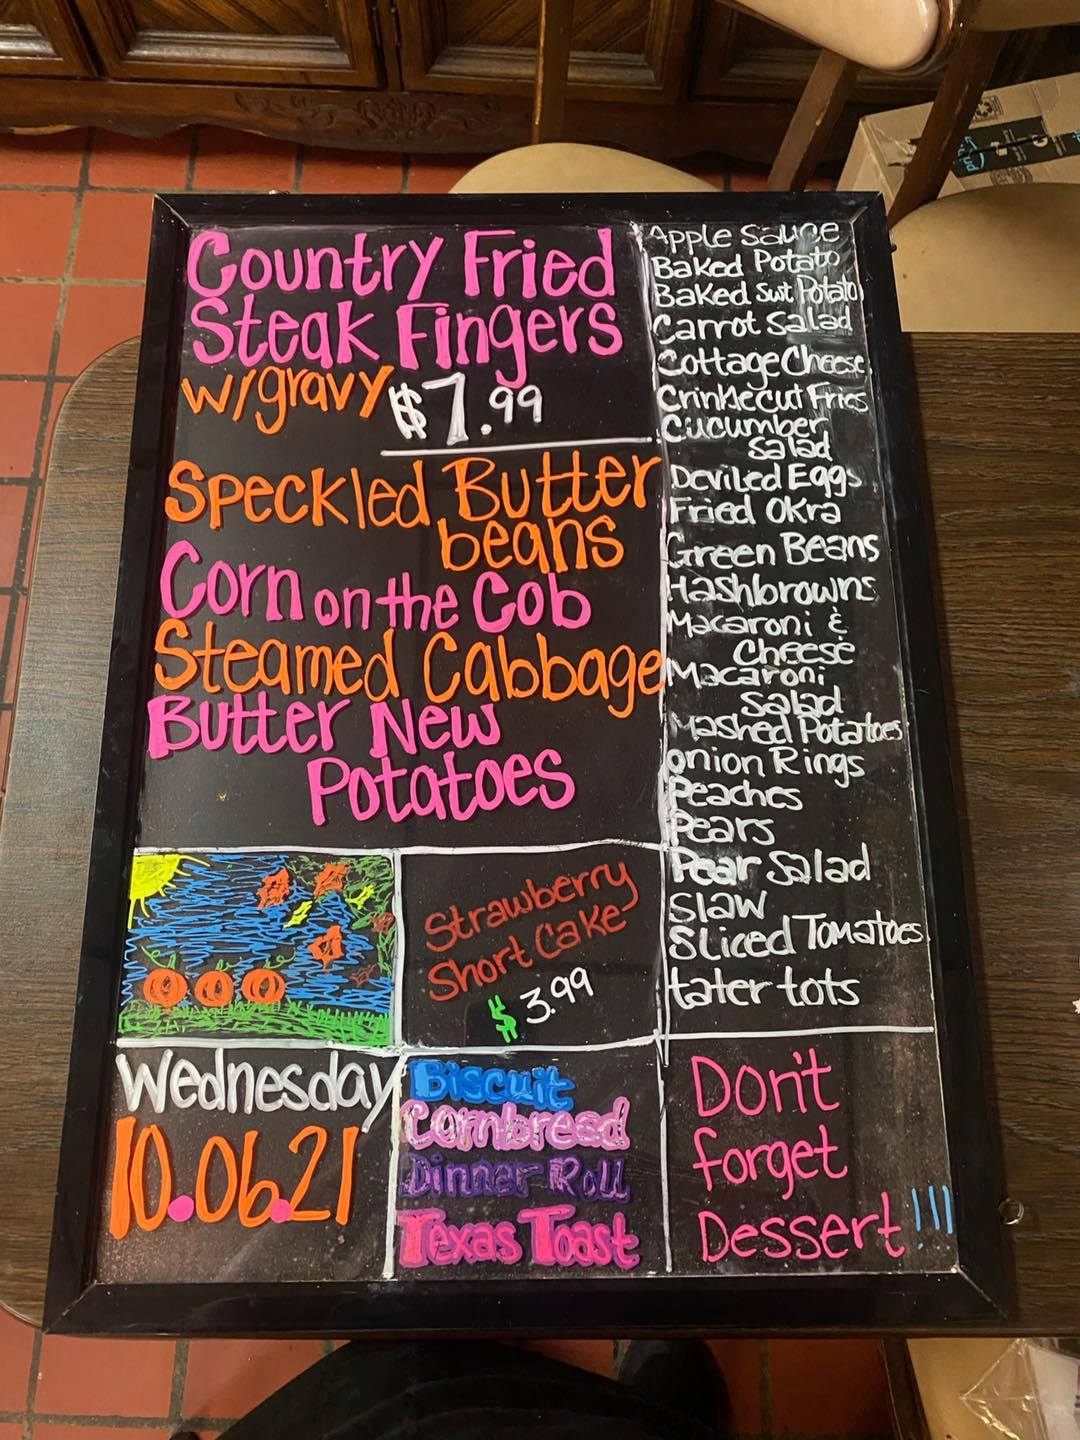 Country Fried
Steak Fingers
w/gravy $7.99
Speckled Butter
beans
Corn on the Cob
Steamed Cabbage
Butter New
Potatoes
Apple Sauce
Baked Potato
Baked Swt Potato
Carrot Salad
Cottage Cheese
Crinkle cut Fries
Cucumber
Salad
Deviled Eggs
Fried Okra
Green Beans
Hashbrowns
Macaroni &
Cheese
Macaroni
Salad
Mashed Potatoes
Onion Rings
Peaches
Pears
Pear Salad
Slaw
Sliced Tomatoes
tater tots
Strawberry
Short Cake
$3.99
Wednesday
10.06.21
Biscuit
Cornbread
Dinner Roll
Texas Toast
Don't
forget
Dessert!!!